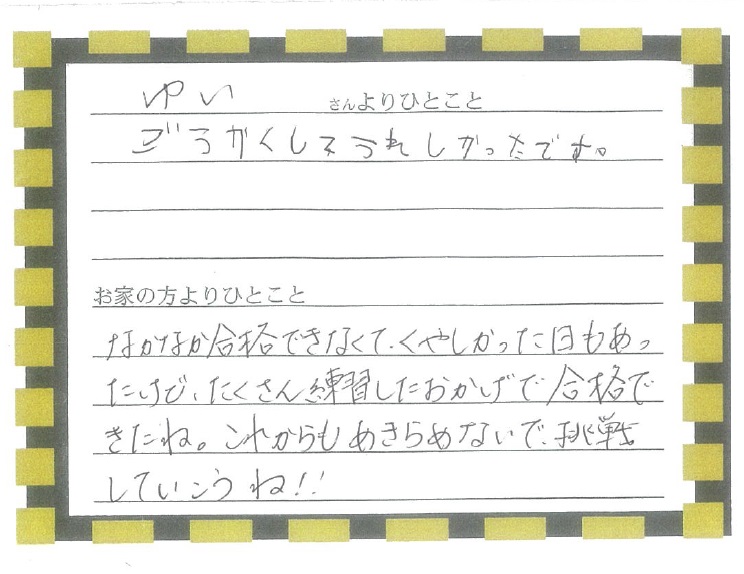 ゆい さんよりひとこと
ごうかくしてうれしかったです。
お家の方よりひとこと
なかなか合格できなくて、くやしかった日もあっ
たけど、たくさん練習したおかげで合格で
きたね。これからもあきらめないで、挑戦
していこうね!!